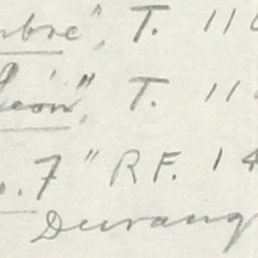 mbre", T. 110
León", T. 11
o. 7" R.F. 14
Durang